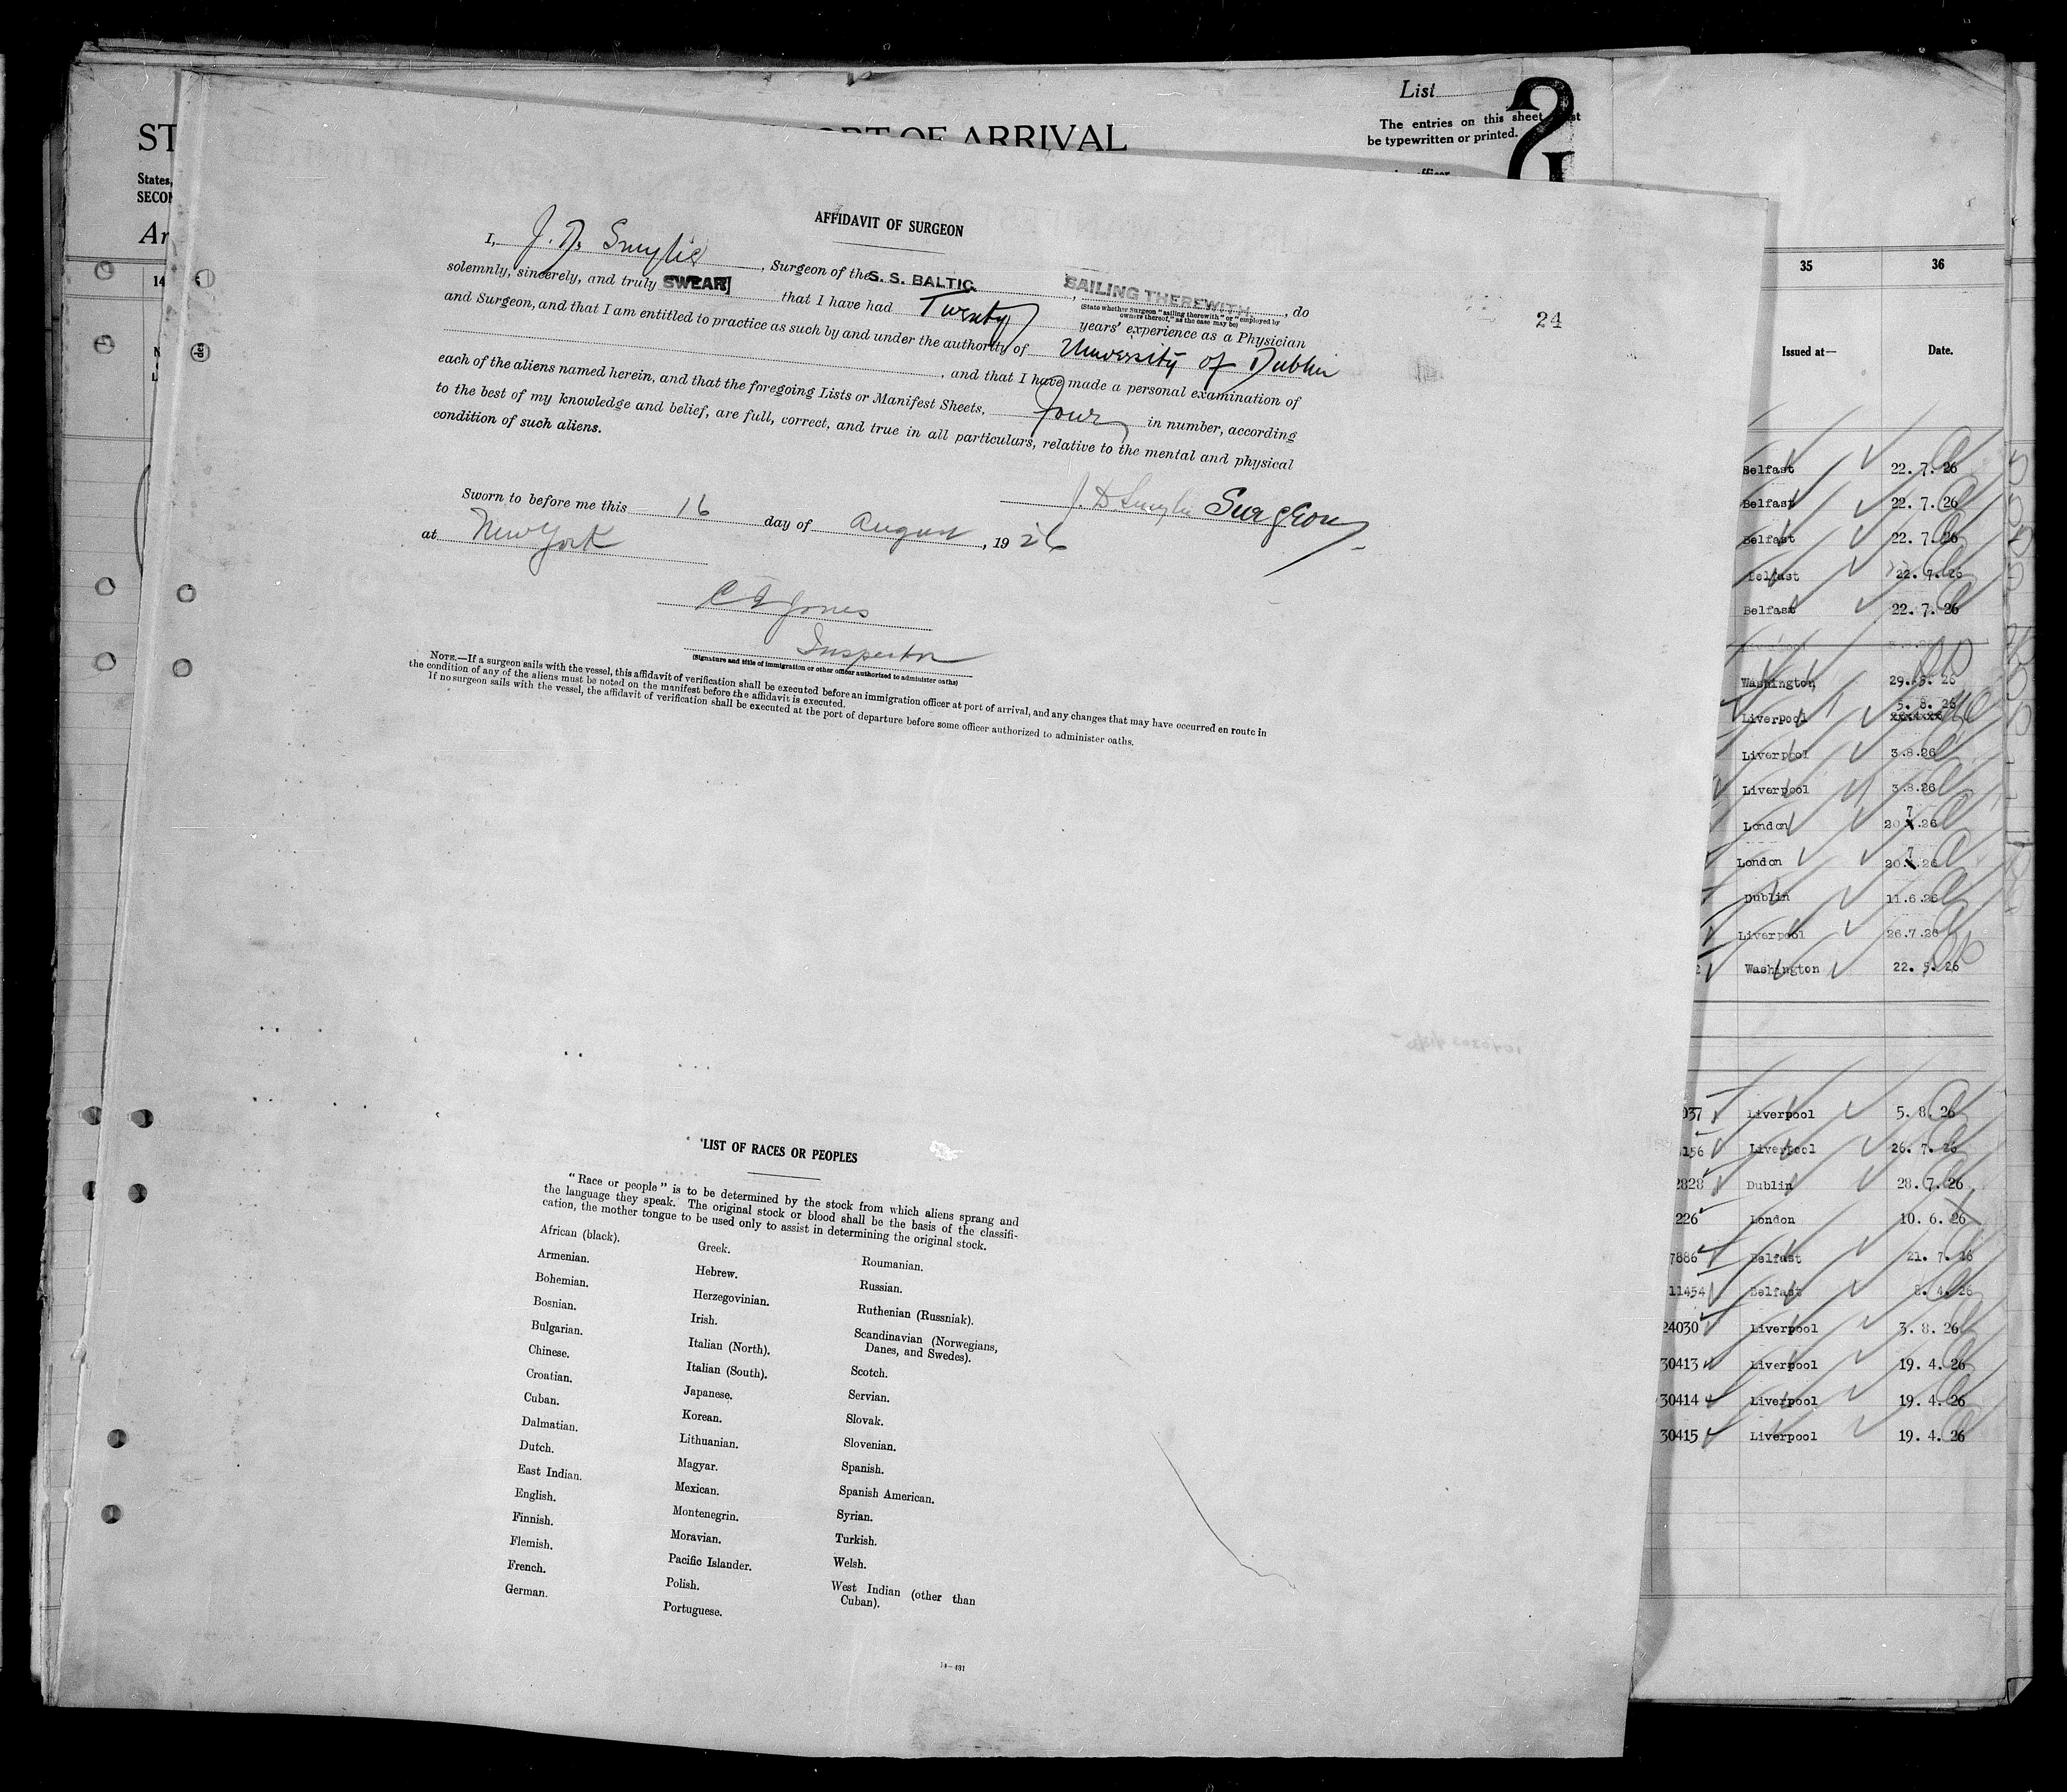 List
The entries on this sheet
be typewritten or printed.
ST
OF ARRIVAL
States,
SECON
Ar
14
35
36
24
Issued at—
Date.
AFFIDAVIT OF SURGEON
I, J. D. Smylie, Surgeon of the S. S. BALTIC, SAILING THEREWITH, do
(State whether Surgeon "sailing therewith" or "employed by
owners thereof," as the case may be)
solemnly, sincerely, and truly SWEAR that I have had Twenty years' experience as a Physician
and Surgeon, and that I am entitled to practice as such by and under the authority of University of Dublin
, and that I have made a personal examination of
each of the aliens named herein, and that the foregoing Lists or Manifest Sheets, Four in number, according
to the best of my knowledge and belief, are full, correct, and true in all particulars, relative to the mental and physical
condition of such aliens.
J. D Smylie Surgeon
Sworn to before me this 16 day of August, 1926
at New York
C E Jones
Inspector
(Signature and title of immigration or other officer authorized to administer oaths)
NOTE.—If a surgeon sails with the vessel, this affidavit of verification shall be executed before an immigration officer at port of arrival, and any changes that may have occurred en route in
the condition of any of the aliens must be noted on the manifest before the affidavit is executed.
If no surgeon sails with the vessel, the affidavit of verification shall be executed at the port of departure before some officer authorized to administer oaths.
LIST OF RACES OR PEOPLES
"Race or people" is to be determined by the stock from which aliens sprang and
the language they speak. The original stock or blood shall be the basis of the classifi-
cation, the mother tongue to be used only to assist in determining the original stock.
African (black).
Armenian.
Bohemian.
Bosnian.
Bulgarian.
Chinese.
Croatian.
Cuban.
Dalmatian.
Dutch.
East Indian.
English.
Finnish.
Flemish.
French.
German.
Greek.
Hebrew.
Herzegovinian.
Irish.
Italian (North).
Italian (South).
Japanese.
Korean.
Lithuanian.
Magyar.
Mexican.
Montenegrin.
Moravian.
Pacific Islander.
Polish.
Portuguese.
Roumanian.
Russian.
Ruthenian (Russniak).
Scandinavian (Norwegians,
Danes, and Swedes).
Scotch.
Servian.
Slovak.
Slovenian.
Spanish.
Spanish American.
Syrian.
Turkish.
Welsh.
West Indian (other than
Cuban).
Belfast 22. 7. 26
Belfast 22. 7. 26
Belfast 22. 7. 26
Belfast 22. 7. 26
Belfast 22. 7. 26
Washington 29. 5. 26
5. 8. 26
Liverpool
Liverpool 3.8.26
Liverpool 3.8.26
London 20 7 .26
London 20. 7 .26
Dublin 11.6.26
Liverpool 26.7.26
2 Washington 22. 5. 26
037 Liverpool 5. 8. 26
156 Liverpool 26. 7. 26
2828 Dublin 28. 7. 26
226 London 10. 6. 26
7886 Belfast 21. 7. 26
11454 Belfast 8. 4. 26
24030 Liverpool 3. 8. 26
30413 Liverpool 19. 4. 26
30414 Liverpool 19. 4. 26
30415 Liverpool 19. 4. 26